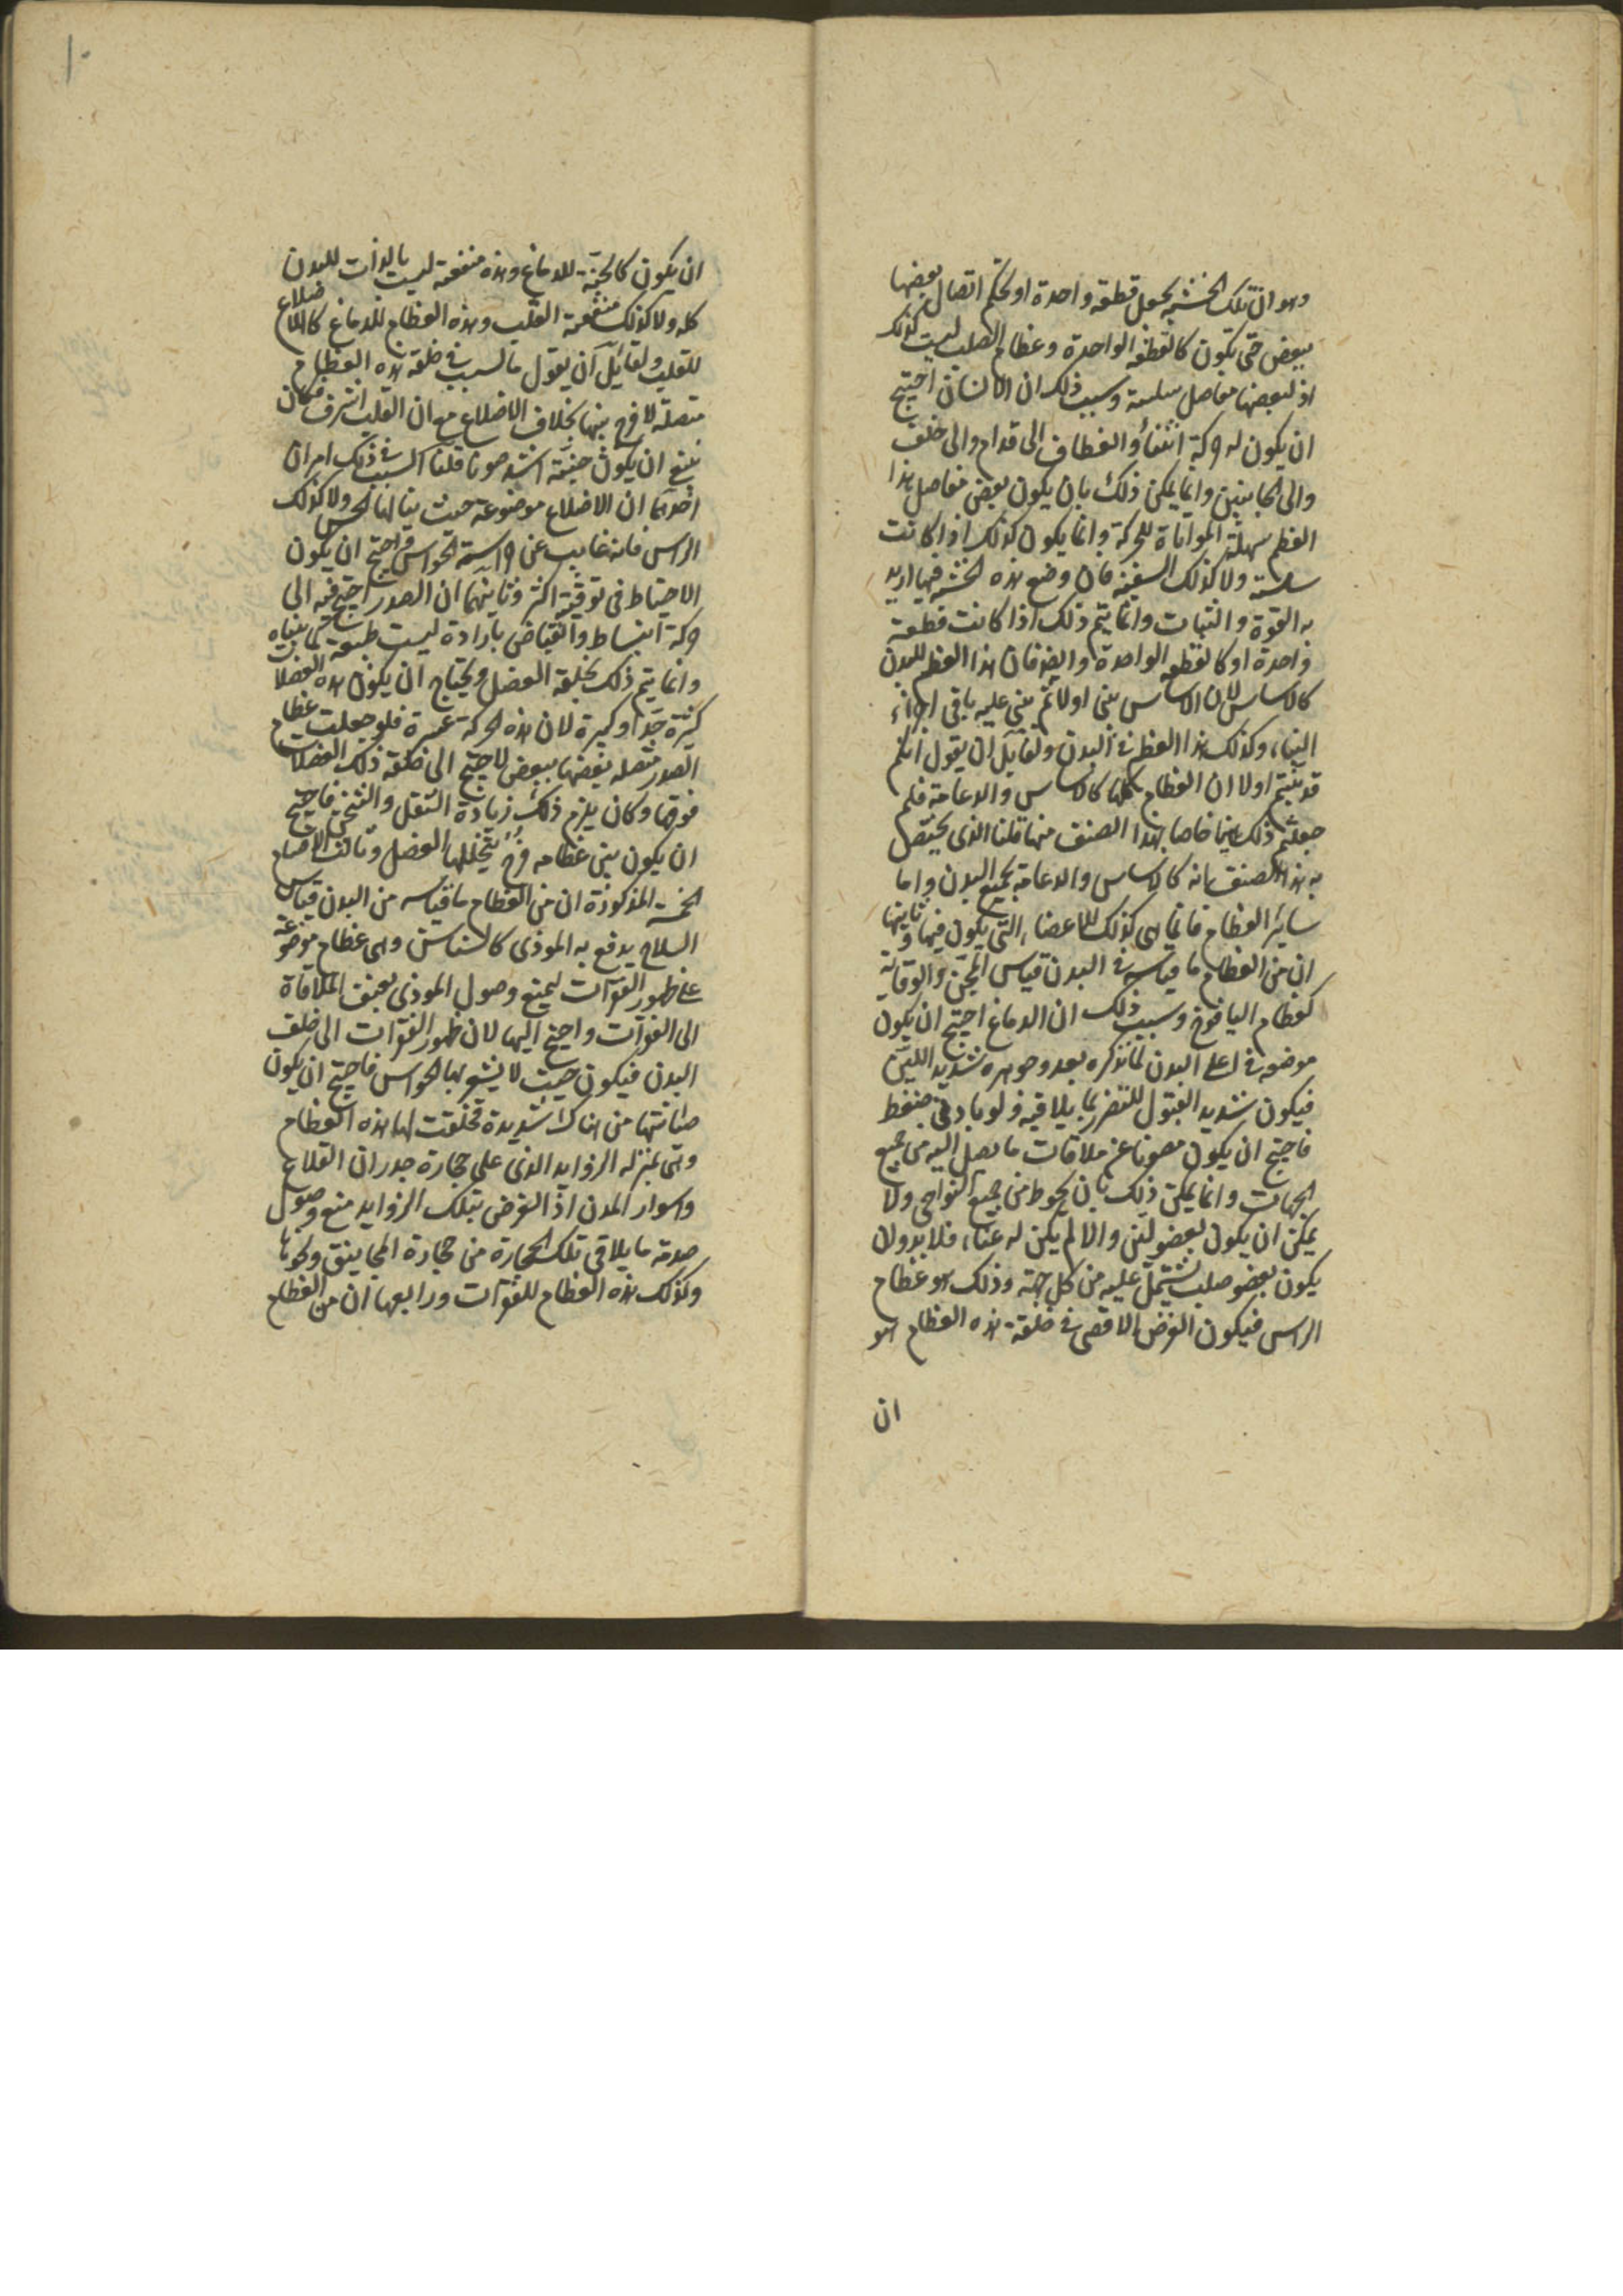 وهو ان تلك الخشبه يجعل قطعه واحدة او يحكم اتصال بعضها
ببعض حتى يكون كالقطعه الواحدة وعظام الصلب ليست كذلك
اذ لبعضها مفاصل سلسة وسبب ذلك ان الانسان احتيج
ان يكون له حركة انثناء وانعطاف الى قدام والى خلف
والى الجانبين وانما يمكن ذلك بان يكون بعض مفاصل هذا
العظم سهلة المواتاة للحركة وانما يكون كذلك اذا كانت
سلسة ولا كذلك السفينه فان وضع هذه الخشبه فيها اريد
به القوة والثبات وانما يتم ذلك اذا كانت قطعة
واحدة او كالقطعه الواحدة وايضا فان هذا العظم للبدن
كالاساس لان الاساس يبنى اولا ثم يبنى عليه باقى اجزاء
البناء وكذلك هذا العظم فى البدن ولقايل ان يقول انكم
قد بينتم اولا ان العظام كلها كالاساس والدعامة فلم
جعلتم ذلك هنا خاصا بهذا الصنف منها قلنا الذى يختص
به هذا الصنف بانه كالاساس والدعامة لجميع البدن واما
ساير العظام فانما هى كذلك للاعضاء التى يكون فيها وثانيها
ان من العظام ما قياسه فى البدن قياس المجن والوقاية
كعظام اليافوخ وسبب ذلك ان الدماغ احتيج ان يكون
موضعه فى اعلى البدن لما نذكره بعد وجوهره شديد اللين
فيكون شديد القبول للتضرر بما يلاقيه ولو بادنى ضغط
فاحتيج ان يكون مصونا عن ملاقات ما يصل اليه من جميع
الجهات وانما يمكن ذلك بان يحوط من جميع النواحى ولا
يمكن ان يكون بعضو لين والا لم يكن له غناء فلا بد وان
يكون بعضو صلب يشتمل عليه من كل جهة وذلك هو عظام
الراس فيكون الغرض الاقصى فى خلقة هذه العظام هو
ان
١٠
ان يكون كالجنة للدماغ وهذه منفعة ليست بالذات للبدن
كله ولا كذلك منفعة القلب وهذه العظام للدماغ كالاضلاع
للقلب ولقايل ان يقول ما السبب فى خلقة هذه العظام
متصلة لا فرج بينها بخلاف الاضلاع مع ان القلب اشرف فكان
ينبغى ان يكون جنته اشد صونا قلنا السبب فى ذلك امران
احدهما ان الاضلاع موضوعة حيث ينالها الحس ولا كذلك
الراس فانه غايب عن حراسة الحواس فاحتيج ان يكون
الاحتياط فى توقيته اكثر وثانيهما ان الصدر احتيج فيه الى
حركة انبساط وانقباض بارادة ليست طبيعة كما بيناه
وانما يتم ذلك بخلقة العضل ويحتاج ان يكون هذه العضلات
كثيرة جدا وكبيرة لان هذه الحركة عسرة فلو جعلت عظام
الصدر متصله بعضها ببعض لاحتيج الى خلقة ذلك العضلات
فوقها وكان يلزم ذلك زيادة الثقل والثخن فاحتيج
ان يكون بين عظامه فرج يتخللها العضل وثالث الاقسام
الخمسة المذكورة ان من العظام ما قياسه من البدن قياس
السلاح يدفع به الموذى كالسناسن وهى عظام موضوعة
على ظهور الفقرات ليمنع وصول الموذى بعنف الملاقاة
الى الفقرات واحتيج اليها لان ظهور الفقرات الى خلف
البدن فيكون حيث لا يشعر بها الحواس فاحتيج ان يكون
صيانتها من هناك شديدة فخلقت لها هذه العظام
وهى بمنزله الزوايد الذى على حجارة جدران القلاع
واسوار المدن اذ الغرض بتلك الزوايد منع وصول
صدمة ما يلاقى تلك الحجارة من حجارة المجانيق ونحوها
وكذلك هذه العظام للفقرات ورابعها ان من العظام